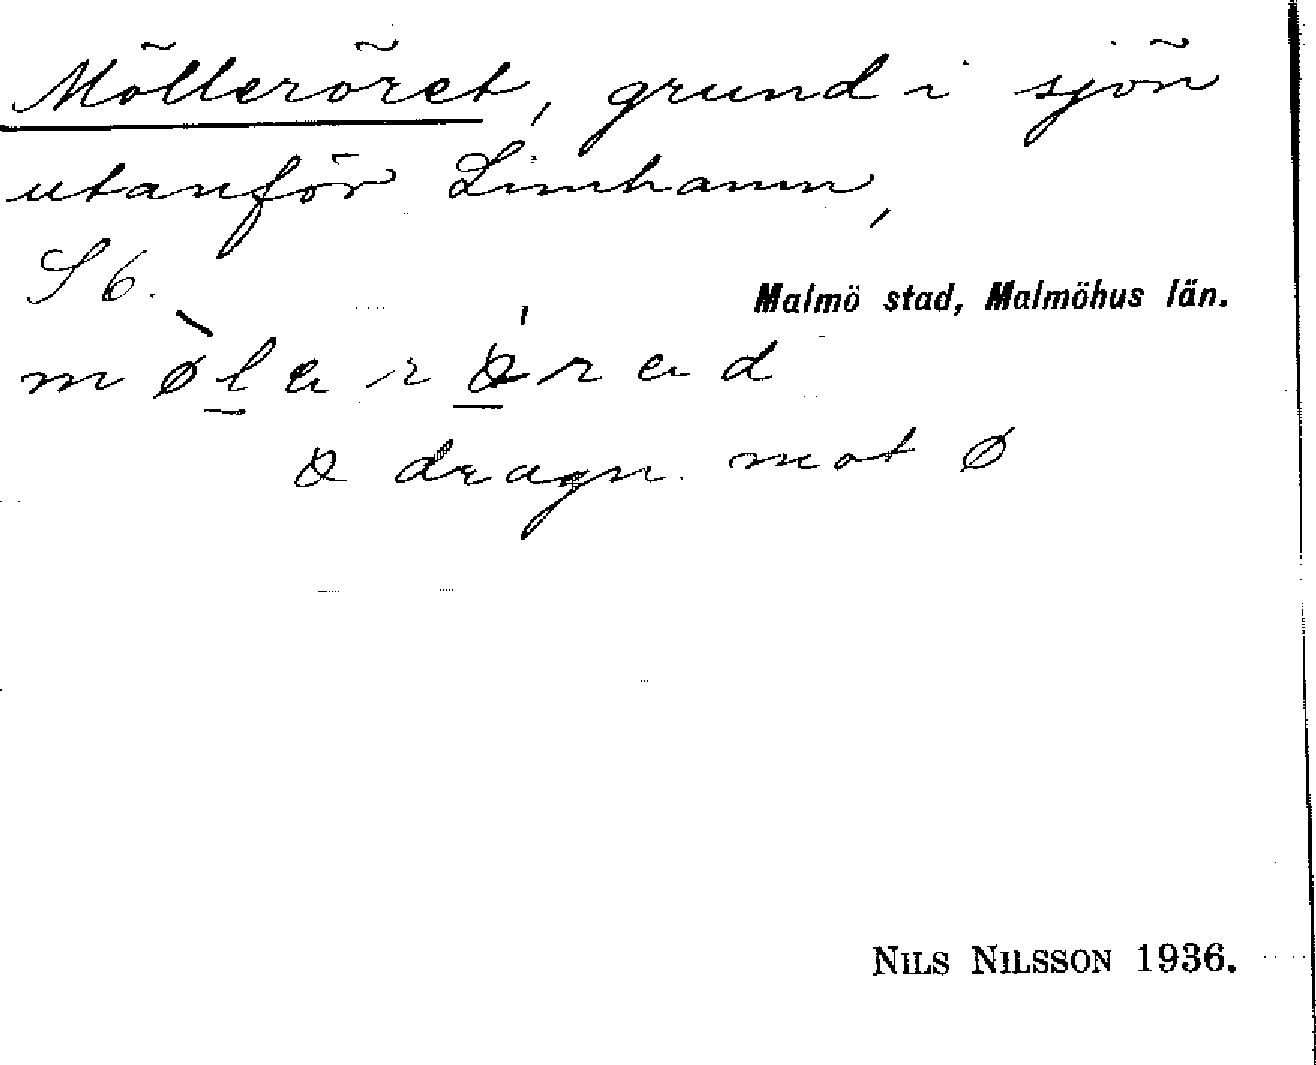 Mölleröret, grund i sjön
utanför Limhamn,
S 6.
Malmö stad, Malmöhus län.
mø̀lerö́red
ö dragn. mot ø
NILS NILSSON 1936.